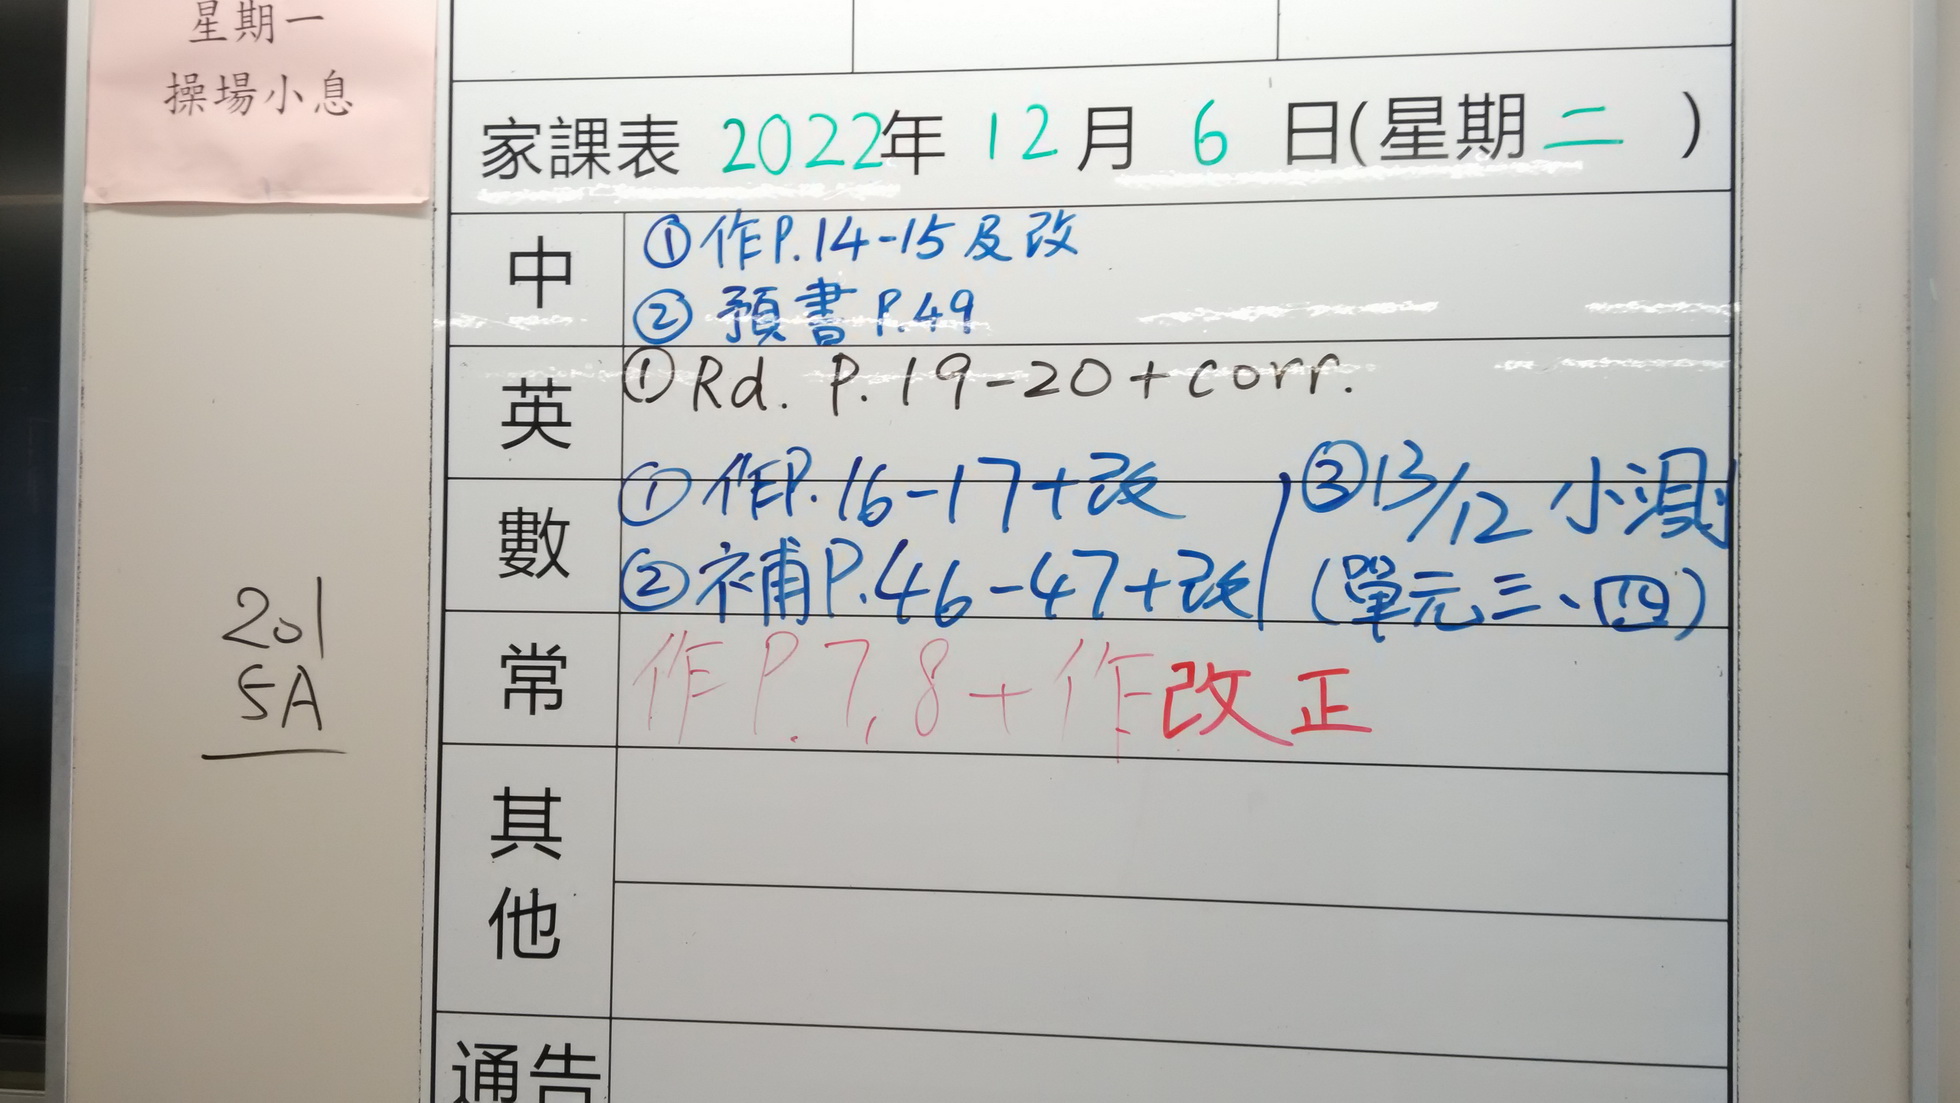 星期一
操場小息
家課表 2022年 12月 6 日(星期二 )
中
①作P.14-15及改
②預書P.49
英
①Rd. P.19-20+corr.
數
①作P.16-17+改
②補P.46-47+改
③13/12 小測
(單元三、四)
常
作P.7,8+作改正
其他
通告
201
5A